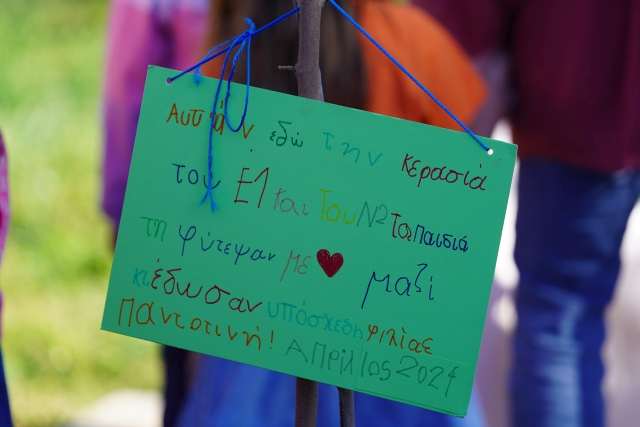 Αυτήν εδώ την κερασιά
του Ε1 και του Ν2 τα παιδιά
τη φύτεψαν με ♥ μαζί
κι έδωσαν υπόσχεση φιλίας
παντοτινή! Απρίλιος 2024